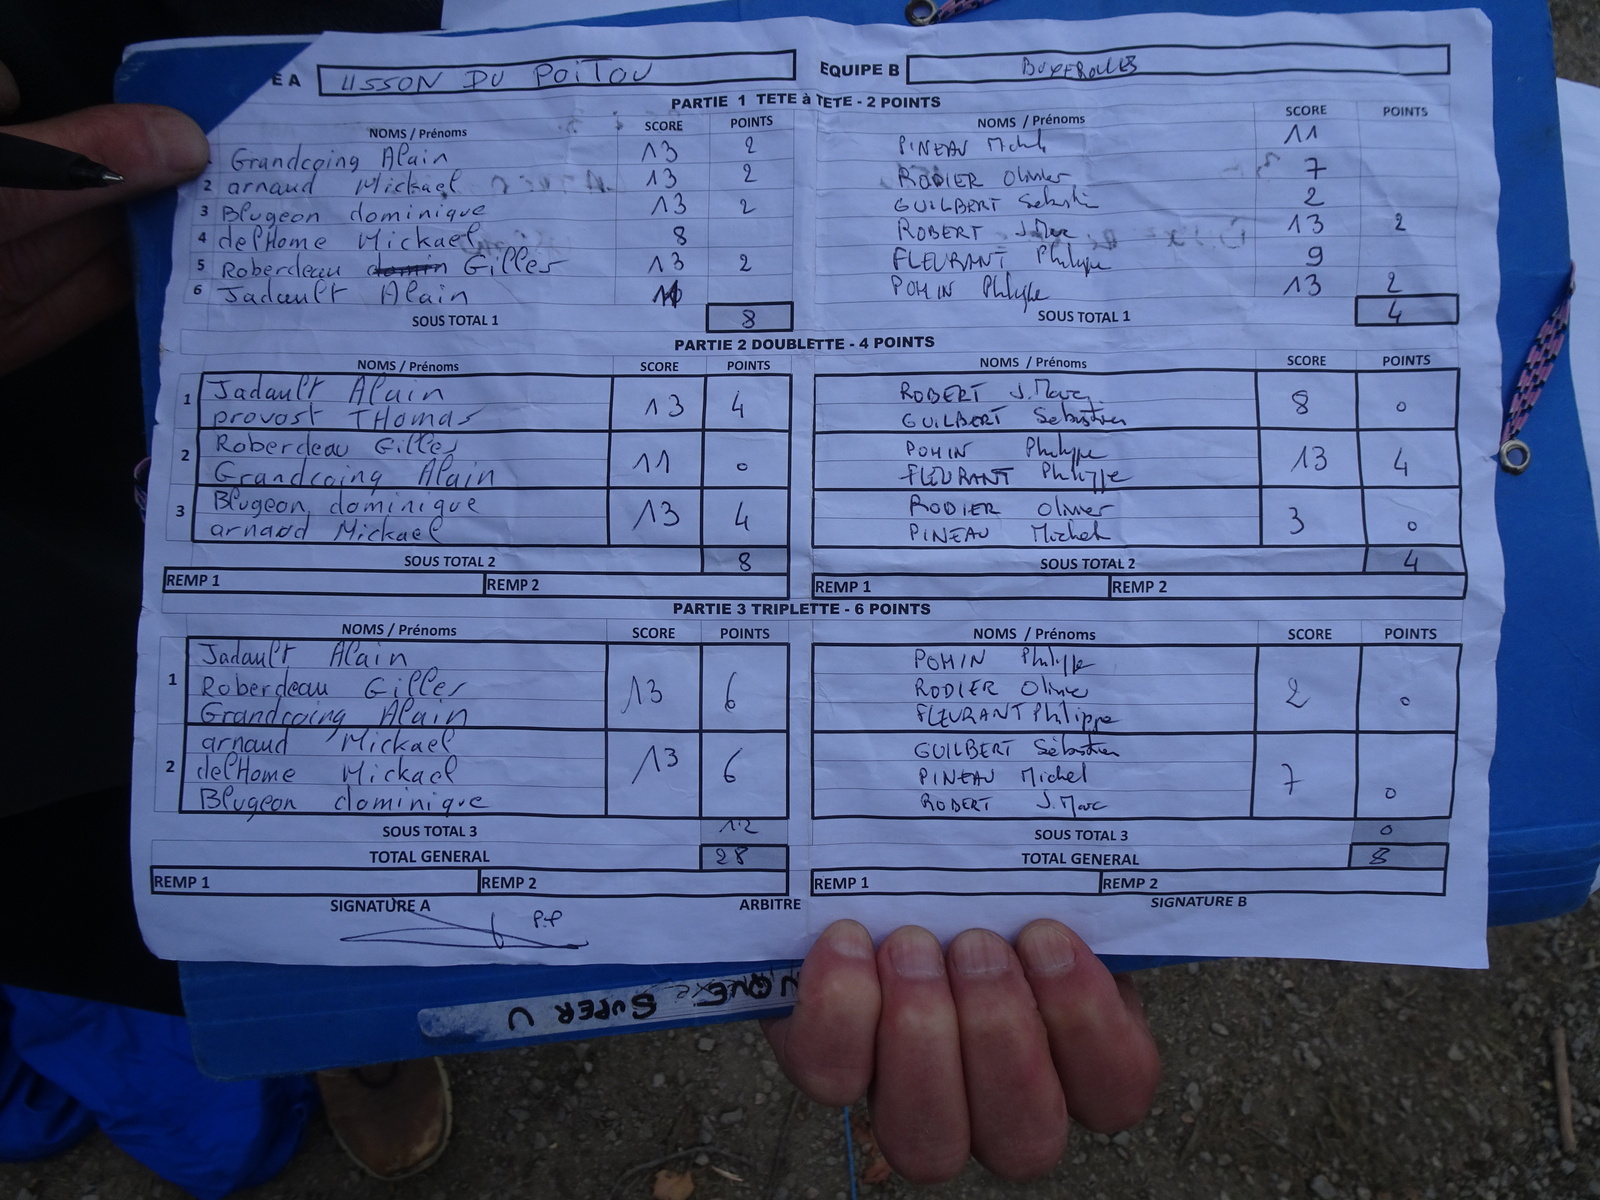 E A USSON DU POITOU EQUIPE B BUXEROLLES
PARTIE 1 TETE à TETE - 2 POINTS
NOMS / Prénoms SCORE POINTS NOMS / Prénoms SCORE POINTS
Grandcoing Alain 13 2 PINEAU Michel 11
2 arnaud Mickael 13 2 RODIER Olivier 7
3 Blugeon dominique 13 2 GUILBERT Sebastien 2
4 delHome Mickael 8 ROBERT J.Marc 13 2
5 Roberdeau Gilles 13 2 FLEURANT Philippe 9
6 Jadault Alain POHIN Philippe 13 2
SOUS TOTAL 1 8 SOUS TOTAL 1 4
PARTIE 2 DOUBLETTE - 4 POINTS
NOMS / Prénoms SCORE POINTS NOMS / Prénoms SCORE POINTS
1 Jadault Alain 13 4 ROBERT J.Marc 8 0
provost THomas GUILBERT Sebastien
2 Roberdeau Gilles 11 0 POHIN Philippe 13 4
Grandcoing Alain FLEURANT Philippe
3 Blugeon dominique 13 4 RODIER Olivier 3 0
arnaud Mickael PINEAU Michel
SOUS TOTAL 2 8 SOUS TOTAL 2 4
REMP 1 REMP 2 REMP 1 REMP 2
PARTIE 3 TRIPLETTE - 6 POINTS
NOMS / Prénoms SCORE POINTS NOMS / Prénoms SCORE POINTS
Jadault Alain POHIN Philippe
1 Roberdeau Gilles 13 6 RODIER Olivier 2 0
Grandcoing Alain FLEURANT Philippe
arnaud Mickael GUILBERT Sébastien
2 delHome Mickael 13 6 PINEAU Michel 7 0
Blugeon dominique ROBERT J.Marc
SOUS TOTAL 3 12 SOUS TOTAL 3 0
TOTAL GENERAL 28 TOTAL GENERAL 8
REMP 1 REMP 2 REMP 1 REMP 2
SIGNATURE A P.P ARBITRE SIGNATURE B
SUPER U